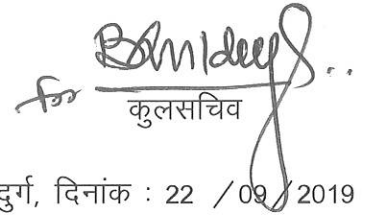 for
कुलसचिव
दुर्ग, दिनांक : 22 / 09 / 2019